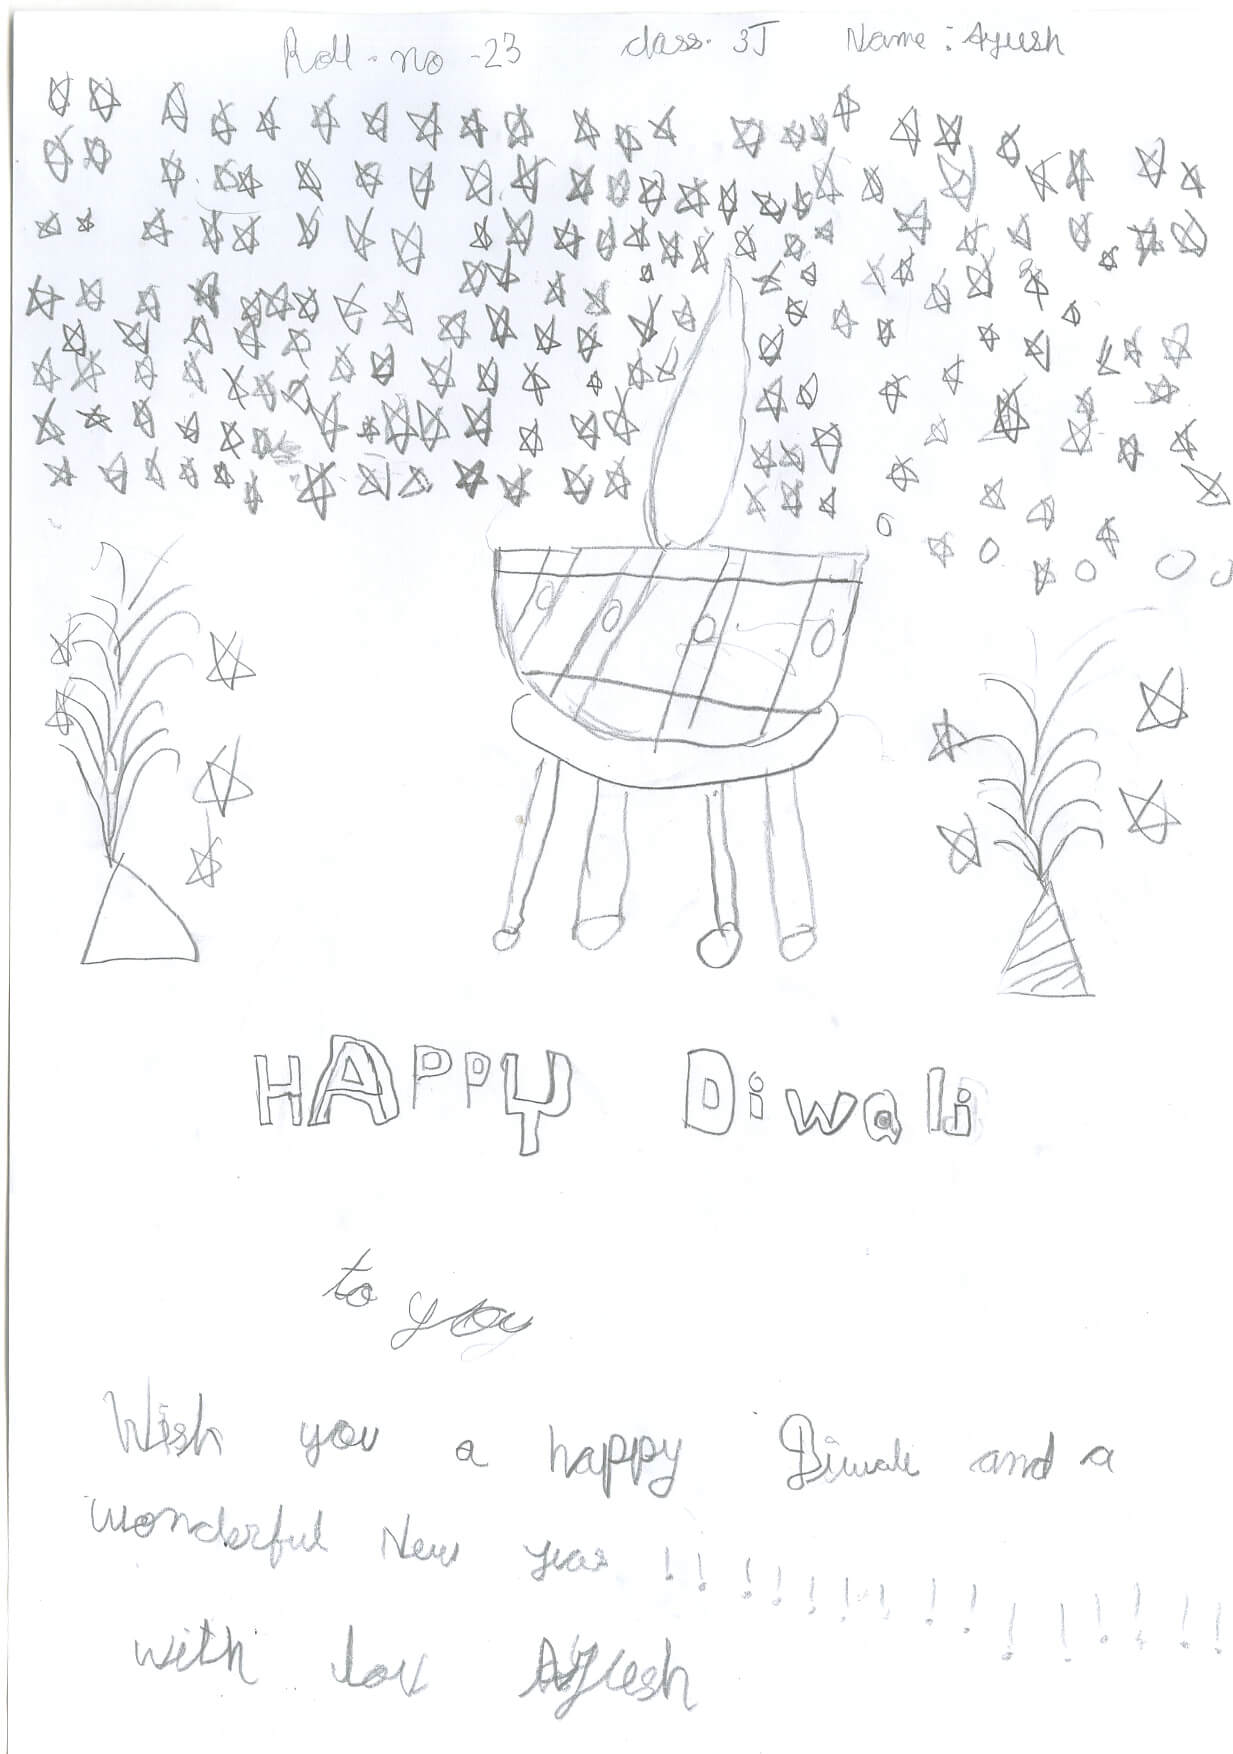 Roll. no -23 class. 3J Name: Ayush
HAPPY Diwali
to you
Wish you a happy Diwali and a
wonderful New year !!!!!!!!!!!!!!!
with lov Ayush